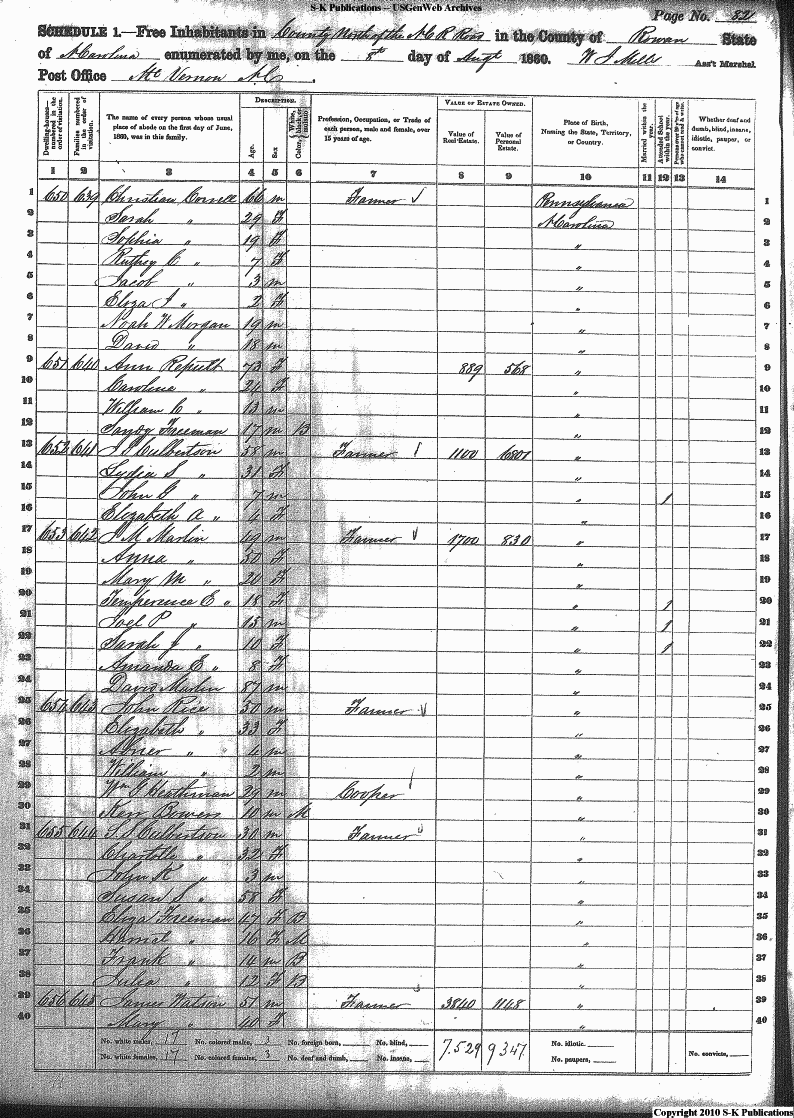 S-K Publications -- USGenWeb Archives
Page No. 82
SCHEDULE 1.—Free Inhabitants in County North of the N C R Road in the County of Rowan State
of N Carolina enumerated by me, on the 8th day of Augt 1860. W J Mills Ass't Marshal.
Post Office Mt Vernon N C.
Dwelling-houses—numbered in the order of visitation. Families numbered in the order of visitation. The name of every person whose usual place of abode on the first day of June, 1860, was in this family. DESCRIPTION. Age. Sex. Color, White, black, or mulatto. Profession, Occupation, or Trade of each person, male and female, over 15 years of age. VALUE OF ESTATE OWNED. Value of Real Estate. Value of Personal Estate. Place of Birth, Naming the State, Territory, or Country. Married within the year. Attended School within the year. Persons over 20 y'rs of age who cannot read & write. Whether deaf and dumb, blind, insane, idiotic, pauper, or convict.
1 2 3 4 5 6 7 8 9 10 11 12 13 14
1 650 639 Christian Correll 66 m Farmer Pennsylvania 1
2 Sarah " 29 F N Carolina 2
3 Sophia " 19 F " 3
4 Ruthey C " 7 F " 4
5 Jacob " 3 m " 5
6 Eliza J " 2 F " 6
7 Noah W Morgan 19 m " 7
8 David " 18 m " 8
9 651 640 Ann 73 F 889 568 " 9
10 Caroline " 24 F " 10
11 William C " 13 m " 11
12 Sandy Freeman 17 m B " 12
13 652 641 Culbertson 58 m Farmer 1100 6801 " 13
14 Lydia S " 31 F " 14
15 John G " 7 m " 1 15
16 Elizabeth A " 4 F " 16
17 653 642 J M Marlin 49 m Farmer 1700 830 " 17
18 Anna " 50 F " 18
19 Mary M " 24 F " 19
20 Temperence E " 18 F " 1 20
21 Joel P " 15 m " 1 21
22 Sarah J " 10 F " 1 22
23 Amanda E " 8 F " 23
24 David Marlin 87 m " 24
25 654 643 John Rice 50 m Farmer " 25
26 Elizabeth " 33 F " 26
27 Abner " 4 m " 27
28 William " 2 m " 28
29 Wm J Heathman 29 m Cooper " 29
30 Kerr Bowers 10 m M " 30
31 655 644 Culbertson 30 m Farmer " 31
32 Charlotte " 32 F " 32
33 John K " 3 m " 33
34 Susan S " 58 F " 34
35 Eliza Freeman 47 F B " 35
36 Harriet " 16 F M " 36
37 Frank " 14 m B " 37
38 Julia " 12 F B " 38
39 656 645 James Watson 51 m Farmer 3840 1148 " 39
40 Mary " 40 F " 40
No. white males, 17 No. colored males, 3 No. foreign born, No. blind, 7.529 9347 No. idiotic, No. convicts,
No. white females, 17 No. colored females, 3 No. deaf and dumb, No. insane, No. paupers,
Copyright 2010 S-K Publications